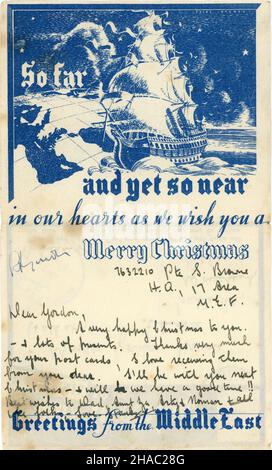 So far
and yet so near
in our hearts as we wish you a
Merry Christmas
7632210 Pte S. Browne
H.Q., 17 Area
M.E.F.
Dear Gordon,
A very happy Christmas to you.
- & lots of presents. Thanks very much
for your post cards, I love receiving them
from you dear. I'll be with you next
Christmas - & will we have a good time!!
Best wishes to Dad, Aunt Ga, Norman & all
the folks - love
Greetings from the Middle East
alamy
Image ID: 2HAC28G
www.alamy.com